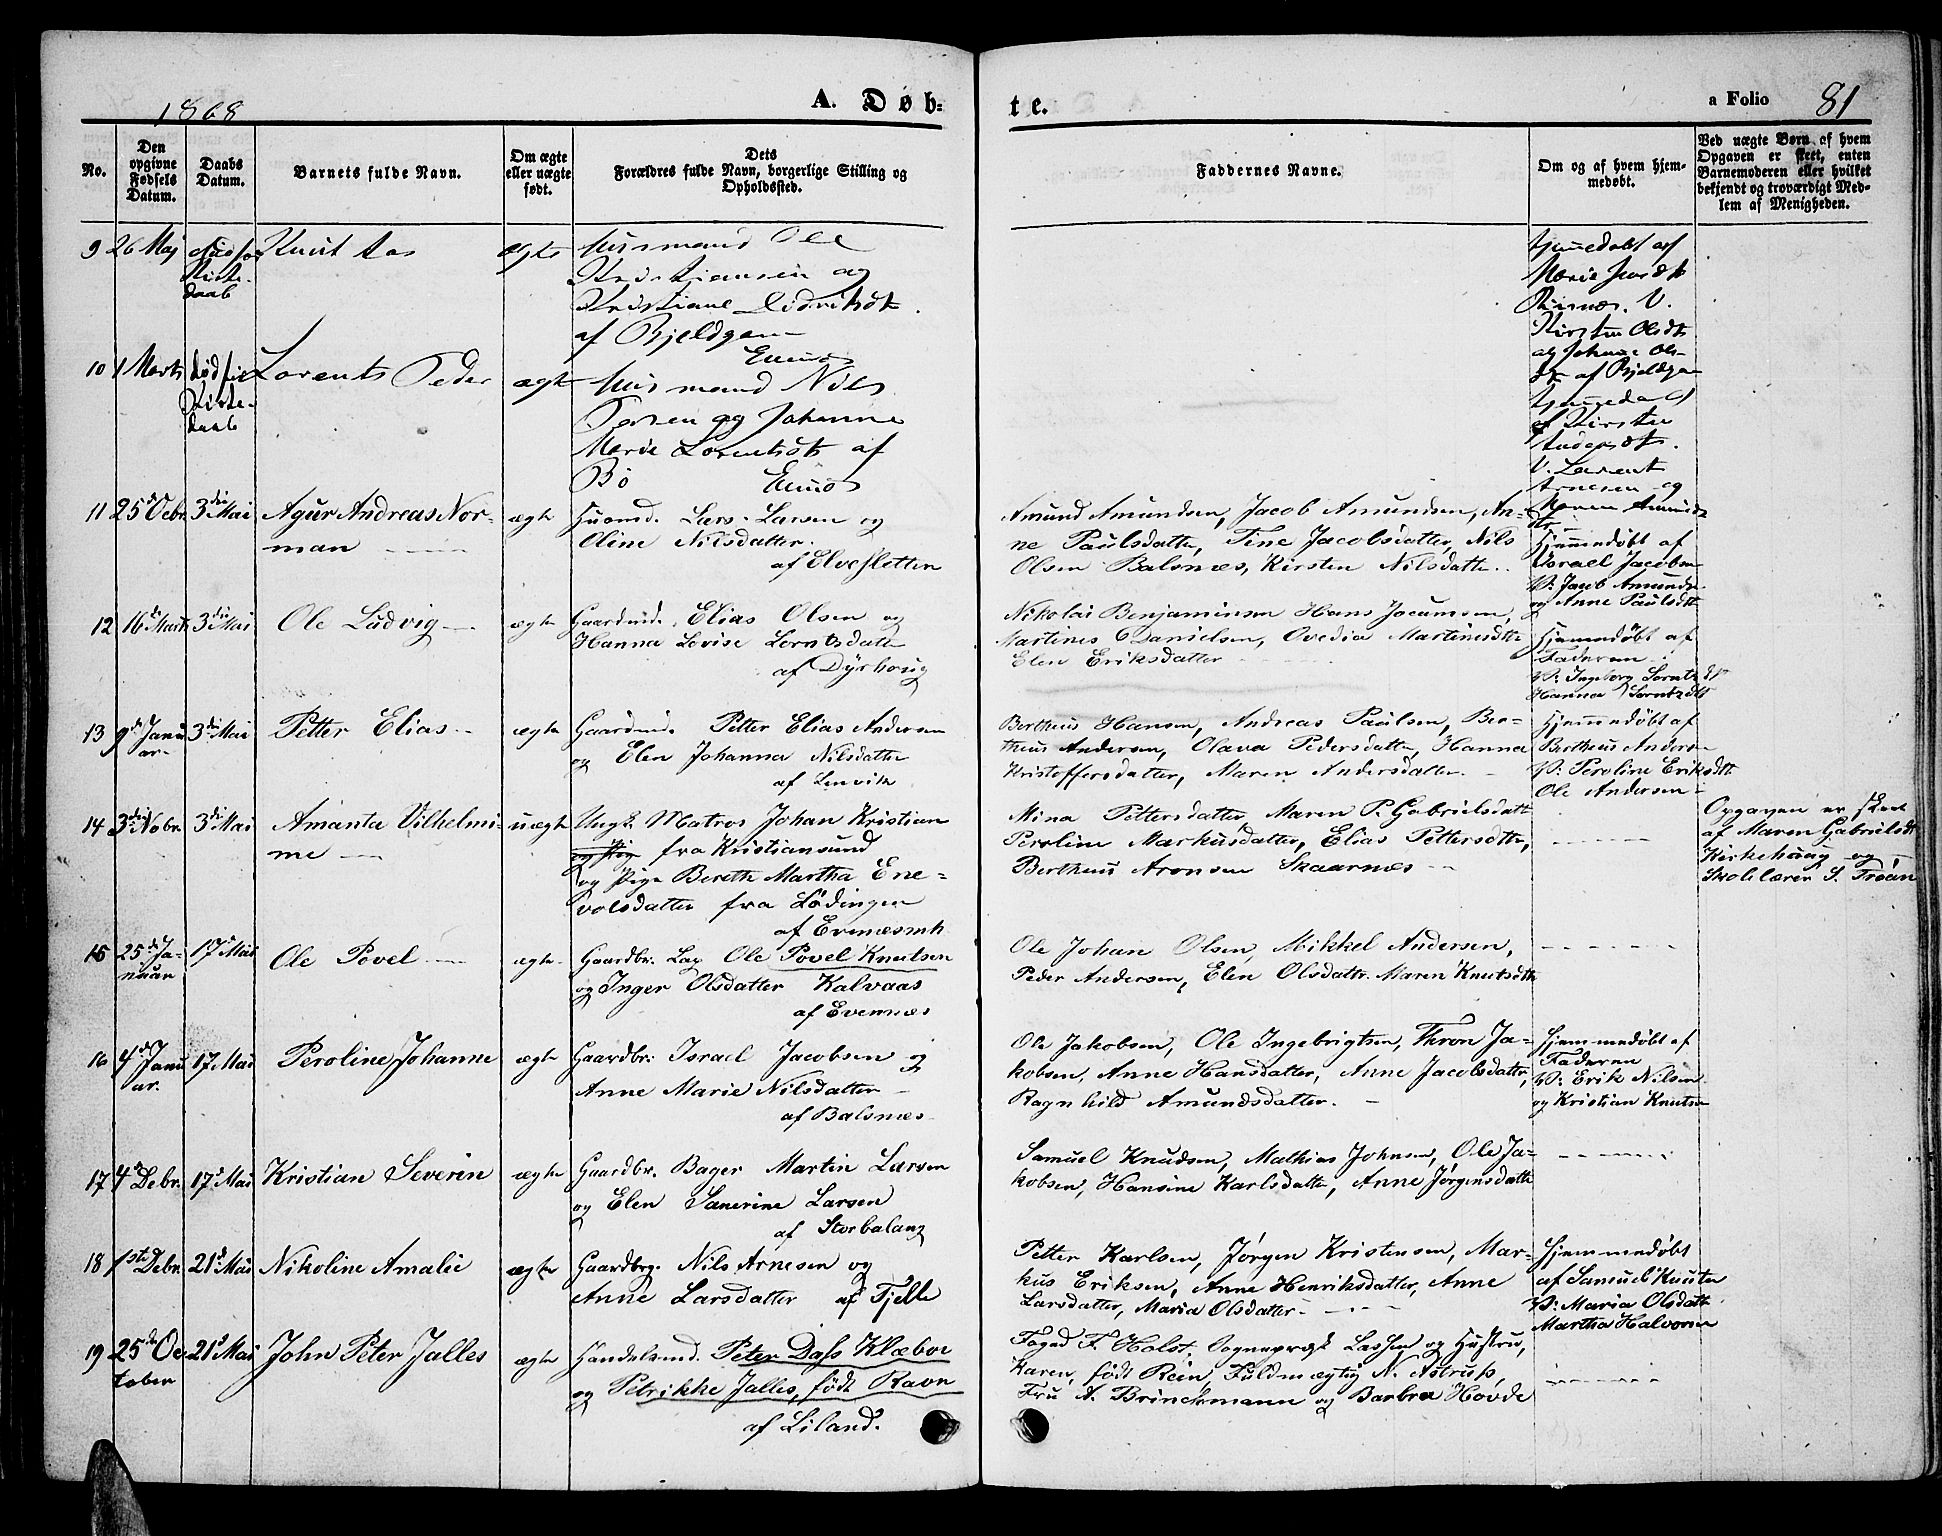 1868
A. Døb-
te.
a Folio 81
No.
Den opgivne Fødsels Datum.
Daabs Datum.
Barnets fulde Navn.
Om ægte eller uægte født.
Dets Forældres fulde Navn, borgerlige Stilling og Opholdssted.
Faddernes Navne.
Om og af hvem hjemmedøbt.
Ved uægte Børn af hvem Opgaven er skeet, enten Barnemoderen eller hvilket bekjendt og troværdigt Medlem af Menigheden.
9 26 Maj
ægte Husmand Ole
Kristiansen og
Kristiane Didriksdt.
af Bjeldgam
Hjemmedøbt af
Kirsten Olsdt
og Johanne Ols-
dt af Bjeldgam
10 1 Marts Lorents Peder ægte Husmand Nils
og Johanne
Marie Lorentsdt af
Bø
Hjemmedøbt
af Kirsten
V. Lorent
Arnesen og
Maren Amunds
dtr
11 25 Octbr. 3die Mai Agur Andreas Nor-
man
ægte Husmd. Lars Larsen og
Oline Nilsdatter.
af Elvesletten
Amund Amundsen, Jacob Amundsen, An-
ne Paulsdatter, Tine Jacobsdatter, Nils
Olsen Balsnæs, Kirsten Nilsdatter.
Hjemmedøbt af
Israel Jacobsen
V: Jacob Amundsn
og Anne Paulsdtr
12 16 Marts 3die Mai Ole Ludvig ægte Gaardmd. Elias Olsen og
Hanna Lovise Lorntsdatter
af Dyrhoug
Nikolai Benjaminsen Hans Jocumsen,
Martines Danielsen, Ovedia Martinesdtr
Elen Eriksdatter
Hjemmedøbt af
Faderen
V: Ingborg Lorntsdt
Hanna Lorntsdtr
13 9de Janu
ar 3die Mai Petter Elias ægte Gaardmd. Petter Elias Andersen
og Elen Johanna Nilsdatter
af Lenvik
Bertheus Hansen, Andreas Paulsen, Ber-
theus Andersen, Olava Pedersdatter, Hanna
Kristoffersdatter, Maren Andersdatter.
Hjemmedøbt af
Bertheus Andersen
V: Peroline Eriksdtr
Ole Andersen
14 3die Nobr. 3die Mai Amanta Vilhelmi-
ne
uægte Ungk. Matros Johan Kristian
og Pige fra Kristiansund
og Pige Berethe Martha Ene-
volsdatter fra Lødingen
af Evenæsmk
Mina Pettersdatter, Maren P. Gabrielsdatt
Peroline Markusdatter, Elias Pettersdtr,
Bertheus Aronsen Skaarnæs
Opgaven er skeet
af Maren Gabrielsdt
Kirkehaug og
Skolelærer S. Troan
15 25de Ja-
nuar 17 Mai Ole Povel ægte Gaardbr. Lap Ole Povel Knutsen
og Inger Olsdatter Kalvaas
af Evennæs
Ole Johan Olsen, Mikkel Andersen,
Peder Andersen, Elen Olsdattr. Maren Knutsdtr
16 4de Janu
ar. 17 Mai Peroline Johanne ægte Gaardbr: Israel Jacobsen og
Anne Marie Nilsdatter
af Balsnæs
Ole Jakobsen, Ole Ingebrigtsen, Thron Ja-
kobsen, Anne Hansdatter, Anne Jacobsdatter,
Ragnhild Amundsdatter.
Hjemmedøbt af
Faderen
V: Erik Nilsen
og Kristian Knutsen
17 4 Debr. 17 Mai Kristian Severin ægte Gaardbr. Bager Martin Larsen
og Elen Sanerine Larsen
af Storbalang
Samuel Knudsen, Mathias Johnsen, Ole Ja-
kobsen, Hansine Karlsdatter, Anne Jørgensdatter
18 1ste Debr. 21 Mai Nikoline Amalie ægte Gaardbrg. Nils Arnesen og
Anne Larsdatter af Fjelle
Petter Karlsen, Jørgen Kristensen, Mar-
kus Eriksen, Anne Henriksdatter, Anne
Larsdatter, Maria Olsdatter.
Hjemmedøbt
af Samuel Knuten
V: Maria Olsdatt
Martha Halvorsen
19 25de Oc-
tober 21 Mai John Peter Jalles ægte Handelsmd. Peter Dass Klæboe
og Petrikke Jalles, født Ravn
af Liland.
Foged F. Holst, Sogneprest Lassen og Hustru,
Karen, født Rein, Fuldmægtig N. Astrup,
Fru A. Brinckmann og Barbra Hovde